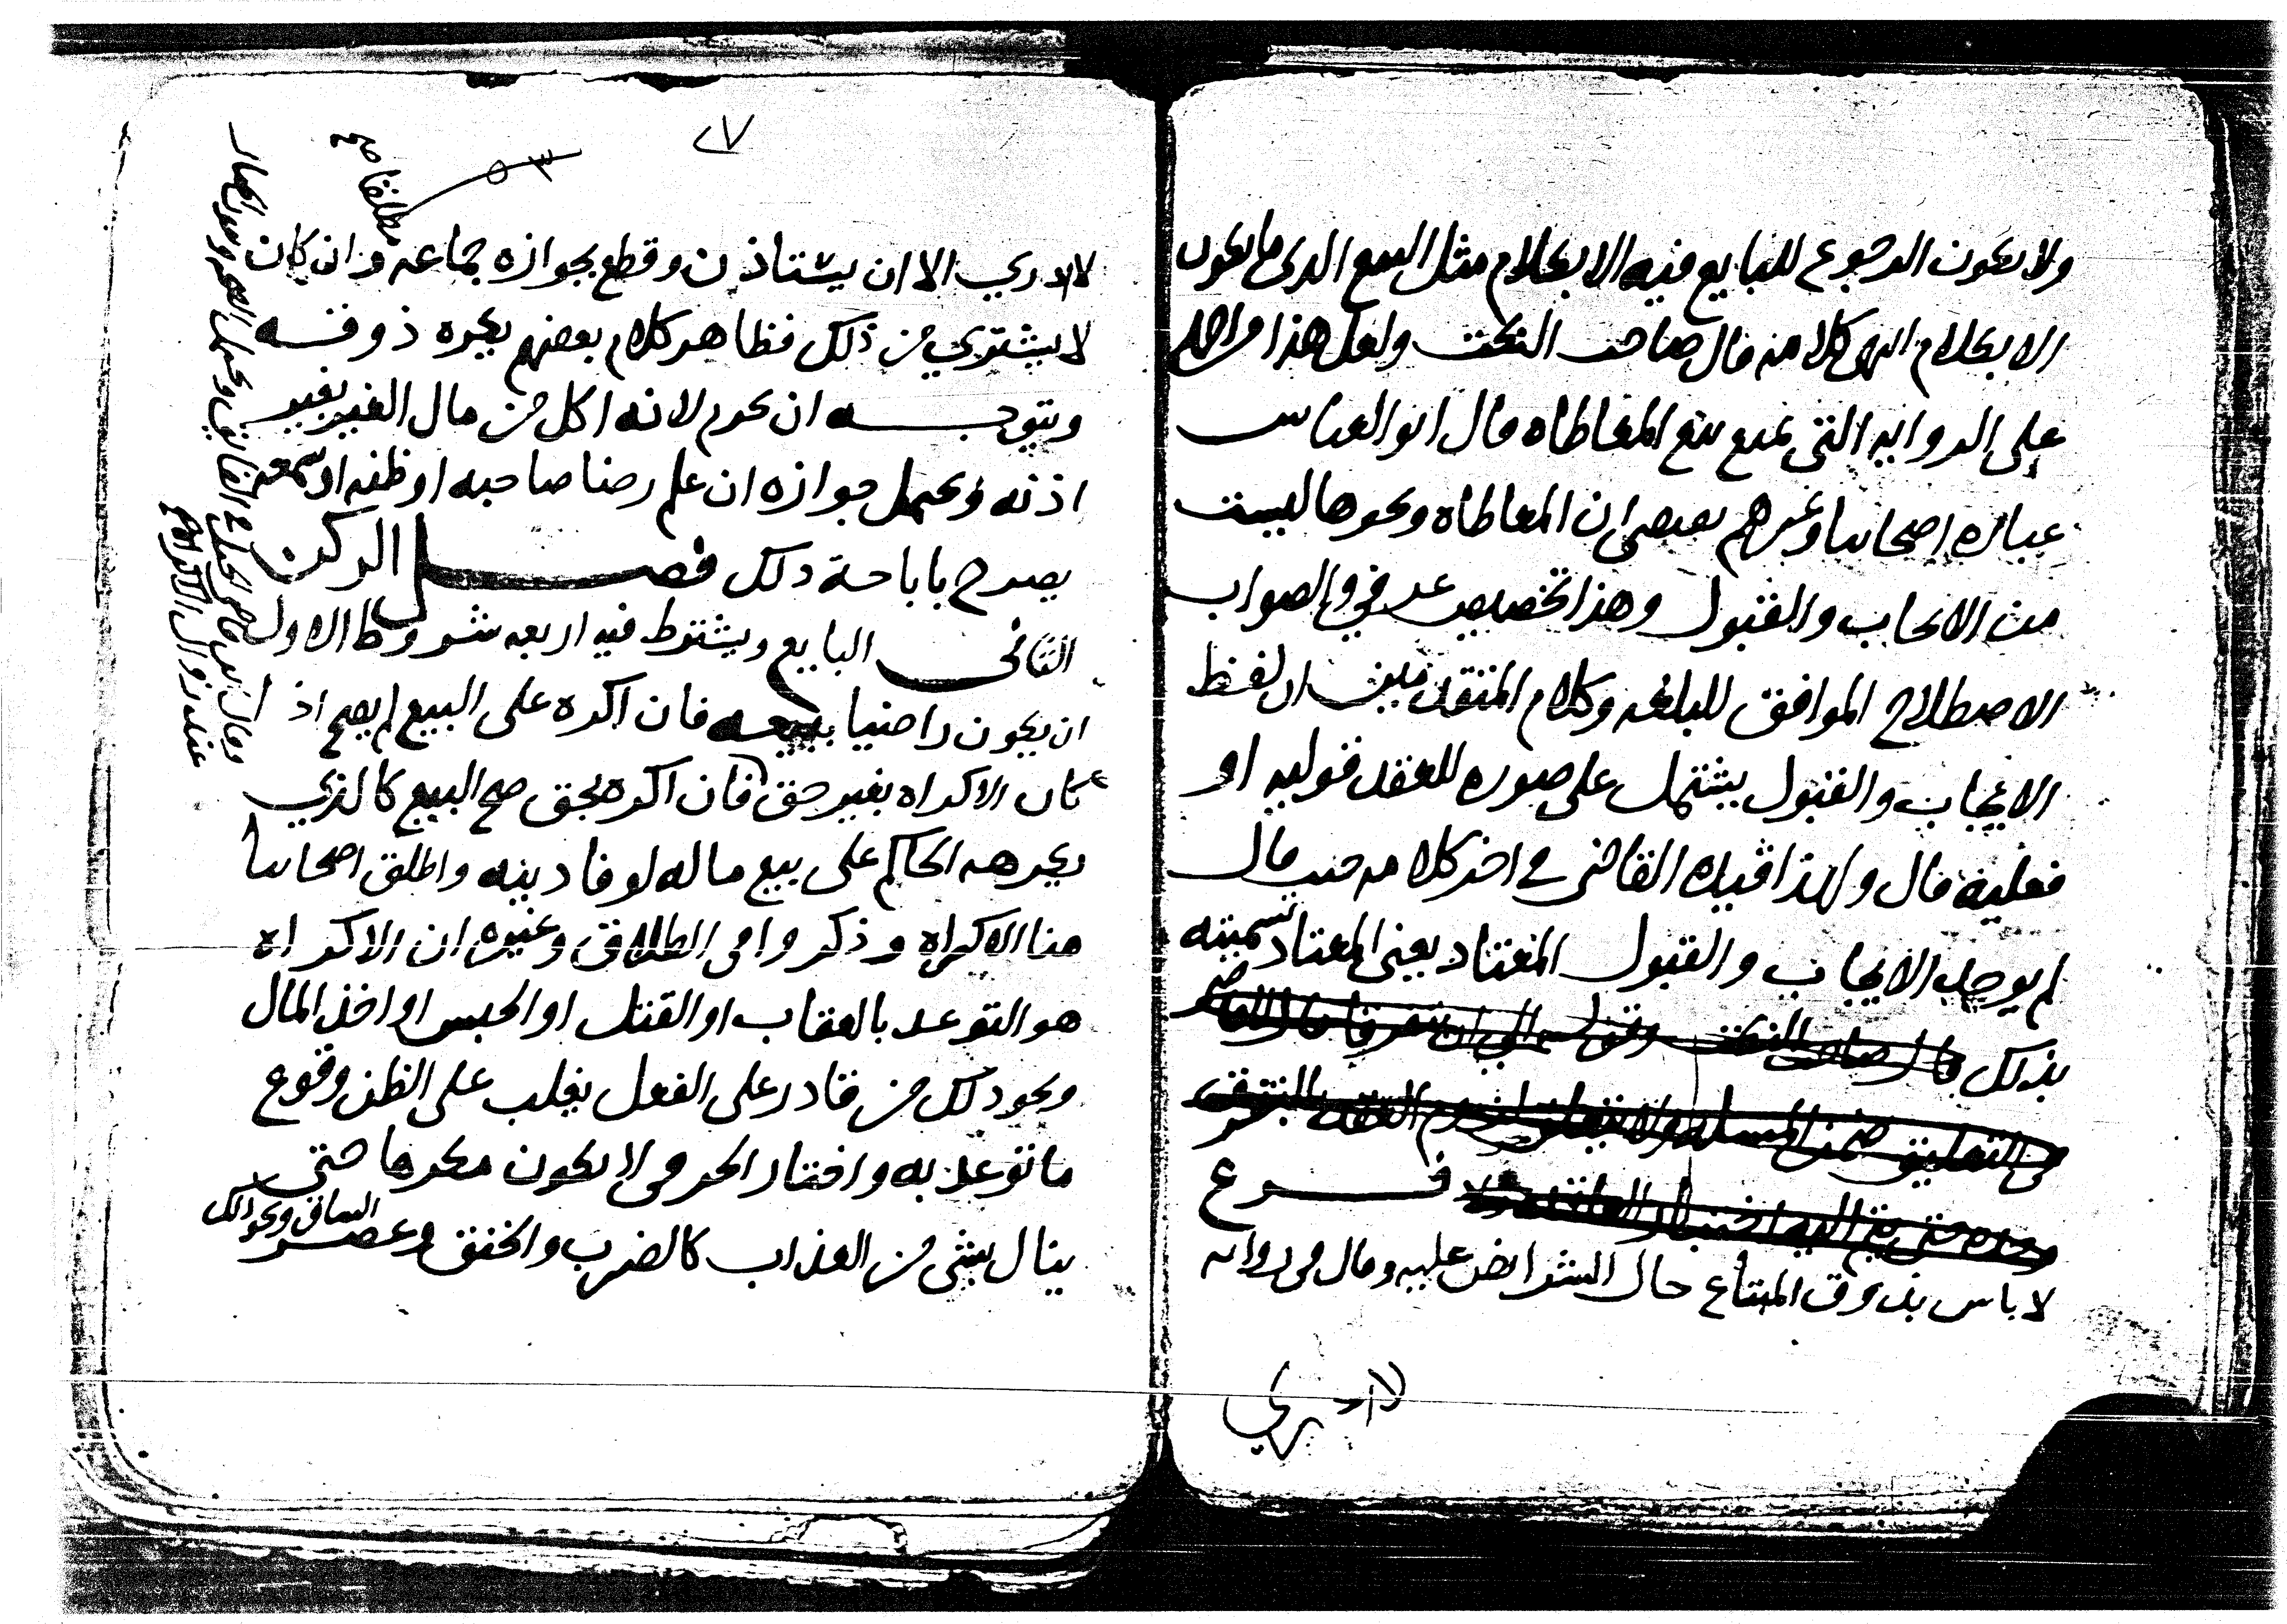 ولا يكون الرجوع للبايع فيه الا بكلام مثل البيع الذي ما يكون
الا بكلام انتهى كلامه قال صاحب النكت ولعل هذا من احمد
على الرواية التي تمنع بيع المعاطاه قال ابو العباس
عباره اصحابنا وغيرهم تقتضي ان المعاطاه ونحوها ليست
من الايجاب والقبول وهذا تخصيص عرفي والصواب
الاصطلاح الموافق للغه وكلام المتقدمين ان لفظ
الايجاب والقبول يشتمل على صوره للعقد قوليه او
فعليه قال ولهذا قيده القاضي في اخر كلامه حيث قال
لم يوجد الايجاب والقبول المعتاد يعني المعتاد تسميته
بذلك قال صاحب النكت
في التعليق ضمن المسله ولا يتعلق لزوم العقد بالتفرق
وحده حتى ينضم اليه اختيار العاقد فرع
لا باس بذوق المبتاع حال الشرا نص عليه وقال في روايه
لا ادري
٢٧
٥٣
لا ادري الا ان يستاذن وقطع بجوازه جماعه وان كان مطلقا صح
لا يشتري من ذلك فظاهر كلام بعضهم يكره ذوقه
ويتوجه ان يحرم لانه اكل من مال الغير بغير
اذنه ويحتمل جوازه ان علم رضا صاحبه او ظنه او سمعه
يصرح باباحة ذلك فصل الركن
الثاني البايع ويشترط فيه اربعه شروط الاول
ان يكون راضيا ببيعه فان اكره على البيع لم يصح اذا
كان الاكراه بغير حق فان اكره بحق صح البيع كالذي
يكرهه الحاكم على بيع ماله لوفا دينه واطلق اصحابنا
هنا الاكراه وذكروا في الطلاق وغيره ان الاكراه
هو التوعد بالعقاب او القتل او الحبس او اخذ المال
ونحو ذلك من قادر على الفعل يغلب على الظن وقوع
ما توعد به واختار الخرقي لا يكون مكرها حتى
ينال بشي من العذاب كالضرب والخنق وعصر الساق ونحو ذلك
عند زوال الاكراه